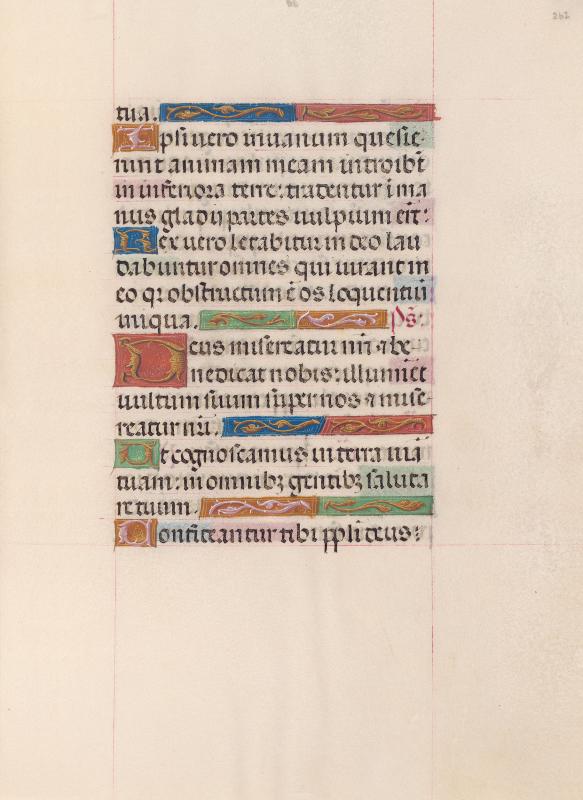 262
tua.
Ipsi vero in vanum quesie
runt animam meam introibt̄
in inferiora terre: tradentur ī ma
nus gladii partes vulpium erūt:
Rex vero letabitur in deo lau
dabuntur omnes qui iurant in
eo qr obstructum ē os loquentiū
iniqua. Ps̄:
Deus misereatur nr̄i ⁊ be
nedicat nobis: illuminet
vultum suum super nos ⁊ mise
reatur nr̄i.
Ut cognoscamus in terra viā
tuam: in omnibꝫ gentibꝫ saluta
re tuum.
Confiteantur tibi ppl̄i deus: